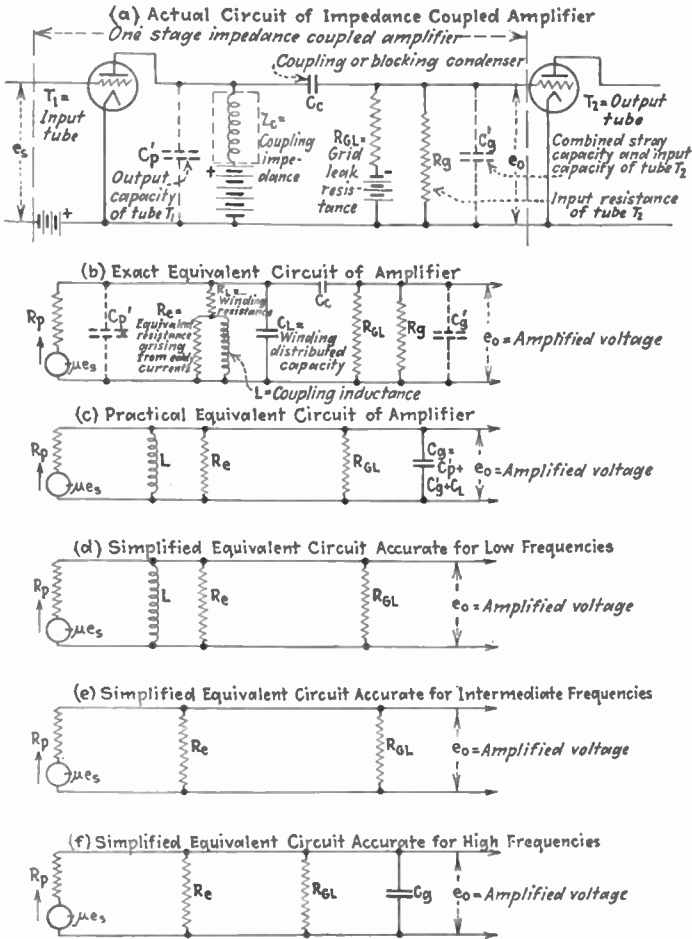 (a) Actual Circuit of Impedance Coupled Amplifier
One stage impedance coupled amplifier
Coupling or blocking condenser
Cc
T1=
Input
tube
es
Cp'
Output
capacity
of tube T1
+
Zc=
Coupling
impe-
dance
RGL=
Grid
leak
resis-
tance
Rg
Cg'
eo
T2=Output
tube
Combined stray
capacity and input
capacity of tube T2
Input resistance
of tube T2
+
(b) Exact Equivalent Circuit of Amplifier
Rp
μes
Cp'
Re=
Equivalent
resistance
arising
from eddy
currents
RL=
Winding
resistance
CL=
Winding
distributed
capacity
L=Coupling inductance
Cc
RGL
Rg
Cg'
eo=Amplified voltage
(c) Practical Equivalent Circuit of Amplifier
Rp
μes
L
Re
RGL
Cg=
Cp'+
Cg'+CL
eo=Amplified voltage
(d) Simplified Equivalent Circuit Accurate for Low Frequencies
Rp
μes
L
Re
RGL
eo=Amplified voltage
(e) Simplified Equivalent Circuit Accurate for Intermediate Frequencies
Rp
μes
Re
RGL
eo=Amplified voltage
(f) Simplified Equivalent Circuit Accurate for High Frequencies
Rp
μes
Re
RGL
Cg
eo=Amplified voltage